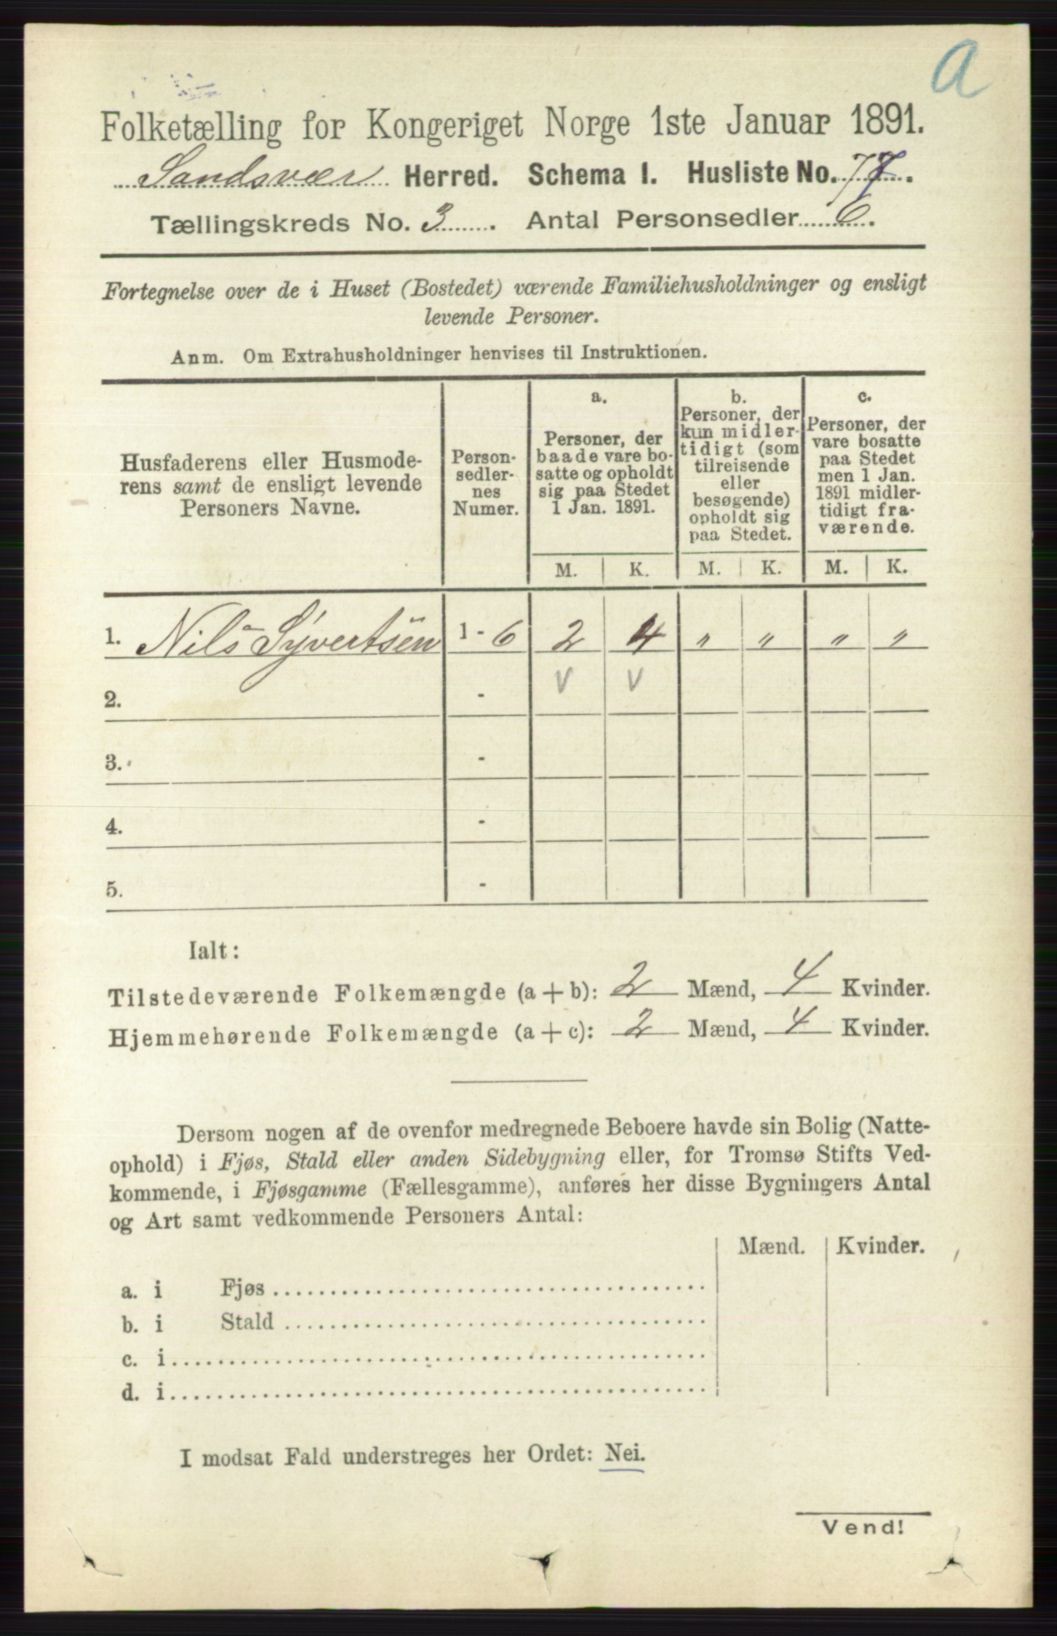 a
Folketælling for Kongeriget Norge 1ste Januar 1891.
Sandsvær Herred. Schema I. Husliste No. 77.
Tællingskreds No. 3. Antal Personsedler 6.
Fortegnelse over de i Huset (Bostedet) værende Familiehusholdninger og ensligt
levende Personer.
Anm. Om Extrahusholdninger henvises til Instruktionen.
Husfaderens eller Husmode-
rens samt de ensligt levende
Personers Navne.
Person-
sedler-
nes
Numer.
a.
Personer, der
baade vare bo-
satte og opholdt
sig paa Stedet
1 Jan. 1891.
b.
Personer, der
kun midler-
tidigt (som
tilreisende
eller
besøgende)
opholdt sig
paa Stedet.
c.
Personer, der
vare bosatte
paa Stedet
men 1 Jan.
1891 midler-
tidigt fra-
værende.
M. K. M. K. M. K.
1. Nils Syvertsen 1 - 6 2 4 " " " "
2. - v v
3. -
4. -
5. -
Ialt:
Tilstedeværende Folkemængde (a + b): 2 Mænd, 4 Kvinder.
Hjemmehørende Folkemængde (a + c): 2 Mænd, 4 Kvinder.
Dersom nogen af de ovenfor medregnede Beboere havde sin Bolig (Natte-
ophold) i Fjøs, Stald eller anden Sidebygning eller, for Tromsø Stifts Ved-
kommende, i Fjøsgamme (Fællesgamme), anføres her disse Bygningers Antal
og Art samt vedkommende Personers Antal:
Mænd. Kvinder.
a. i Fjøs
b. i Stald
c. i
d. i
I modsat Fald understreges her Ordet: Nei.
Vend!